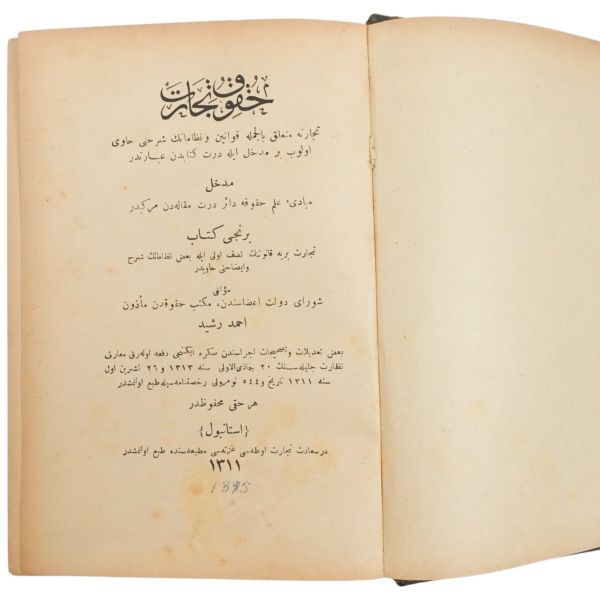 حقوق تجارت
تجارته متعلق بالجمله قوانین و نظاماتك شرحنی حاوی
اولوب بر مدخل ایله درت کتابدن عبارتدر
مدخل
مبادیء علم حقوقه دائر درت مقاله‌دن مرکبدر
برنجی کتاب
تجارت بریه قانوننك نصف اولی ایله بعض نظاماتك شرح
وایضاحنی حاویدر
مؤلفی
شورای دولت اعضاسندن، مکتب حقوقدن مأذون
احمد رشید
بعض تعدیلات وتصحیحات اجراسندن صکره ایکنجی دفعه اوله‌رق معارف
نظارت جلیله‌سنك ٢٠ جماذی‌الاولی سنه ١٣١٣ و ٢٦ تشرین اول
سنه ١٣١١ تاریخ و ٥٤٤ نومرولی رخصتنامه‌سیله طبع اولنمشدر
هر حقی محفوظدر
{استانبول}
درسعادت تجارت اوطه‌سی غزته‌سی مطبعه‌سنده طبع اولنمشدر
١٣١١
1895